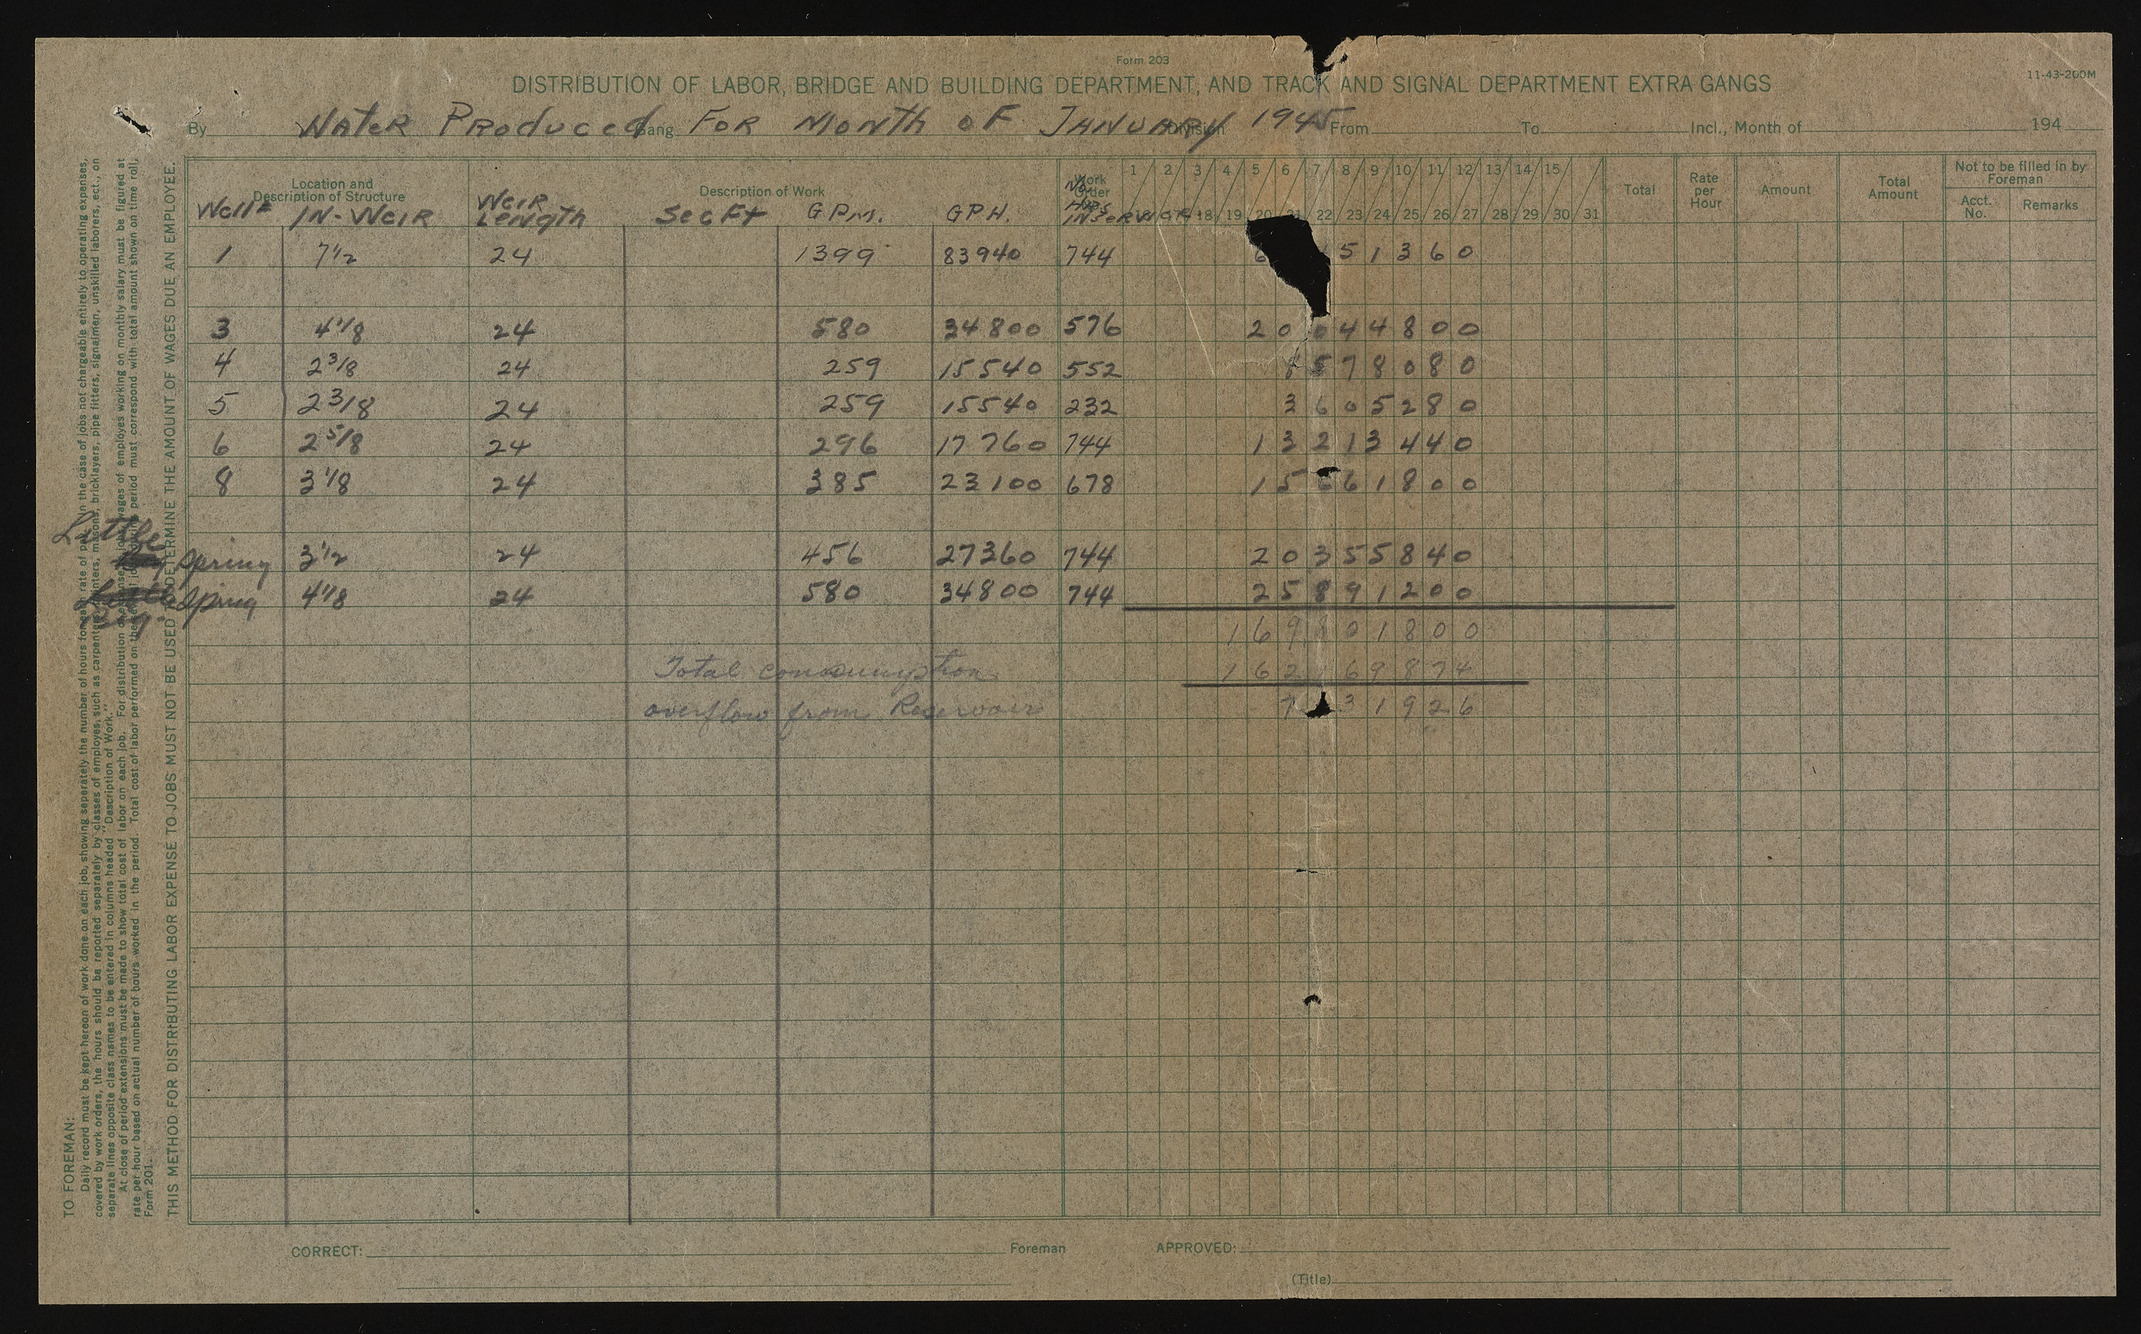 Form 203
11-43-200M
DISTRIBUTION OF LABOR, BRIDGE AND BUILDING DEPARTMENT, AND TRACK AND SIGNAL DEPARTMENT EXTRA GANGS
By Water Produced Gang For Month of January Division 1945 From To Incl., Month of 194
Location and Description of Structure
Description of Work
Work Order
1 2 3 4 5 6 7 8 9 10 11 12 13 14 15
18 19 20 21 22 23 24 25 26 27 28 29 30 31
Total
Rate per Hour
Amount
Total Amount
Not to be filled in by Foreman
Acct. No.
Remarks
Well# IN-WEIR WEIR LENGTH Sec Ft G.P.M. G.P.H. No. Hrs INService
1 7 1/2 24 1399 83940 744 6 51360
3 4 1/8 24 580 34800 576 20044800
4 2 3/8 24 259 15540 552 8578080
5 2 3/8 24 259 15540 232 3605280
6 2 5/8 24 296 17760 744 13213440
8 3 1/8 24 385 23100 678 15661800
Little Spring 3 1/2 24 456 27360 744 20355840
Big Spring 4 1/8 24 580 34800 744 25891200
169801800
Total consumption 162 69874
overflow from Reservoir 7 31926
TO FOREMAN:
Daily record must be kept hereon of work done on each job, showing seperately the number of hours for each rate of pay. In the case of jobs not chargeable entirely to operating expenses,
covered by work orders, the hours should be reported separately by classes of employes, such as carpenters, painters, masons, bricklayers, pipe fitters, signalmen, unskilled laborers, ect., on
separate lines opposite class names to be entered in columns headed "Description of Work."
At close of period extensions must be made to show total cost of labor on each job. For distribution of wages of employes working on monthly salary must be figured at
rate per hour based on actual number of hours worked in the period. Total cost of labor performed on the period must correspond with total amount shown on time roll,
Form 201.
THIS METHOD FOR DISTRIBUTING LABOR EXPENSE TO JOBS MUST NOT BE USED TO DETERMINE THE AMOUNT OF WAGES DUE AN EMPLOYEE.
CORRECT: Foreman APPROVED:
(Title)